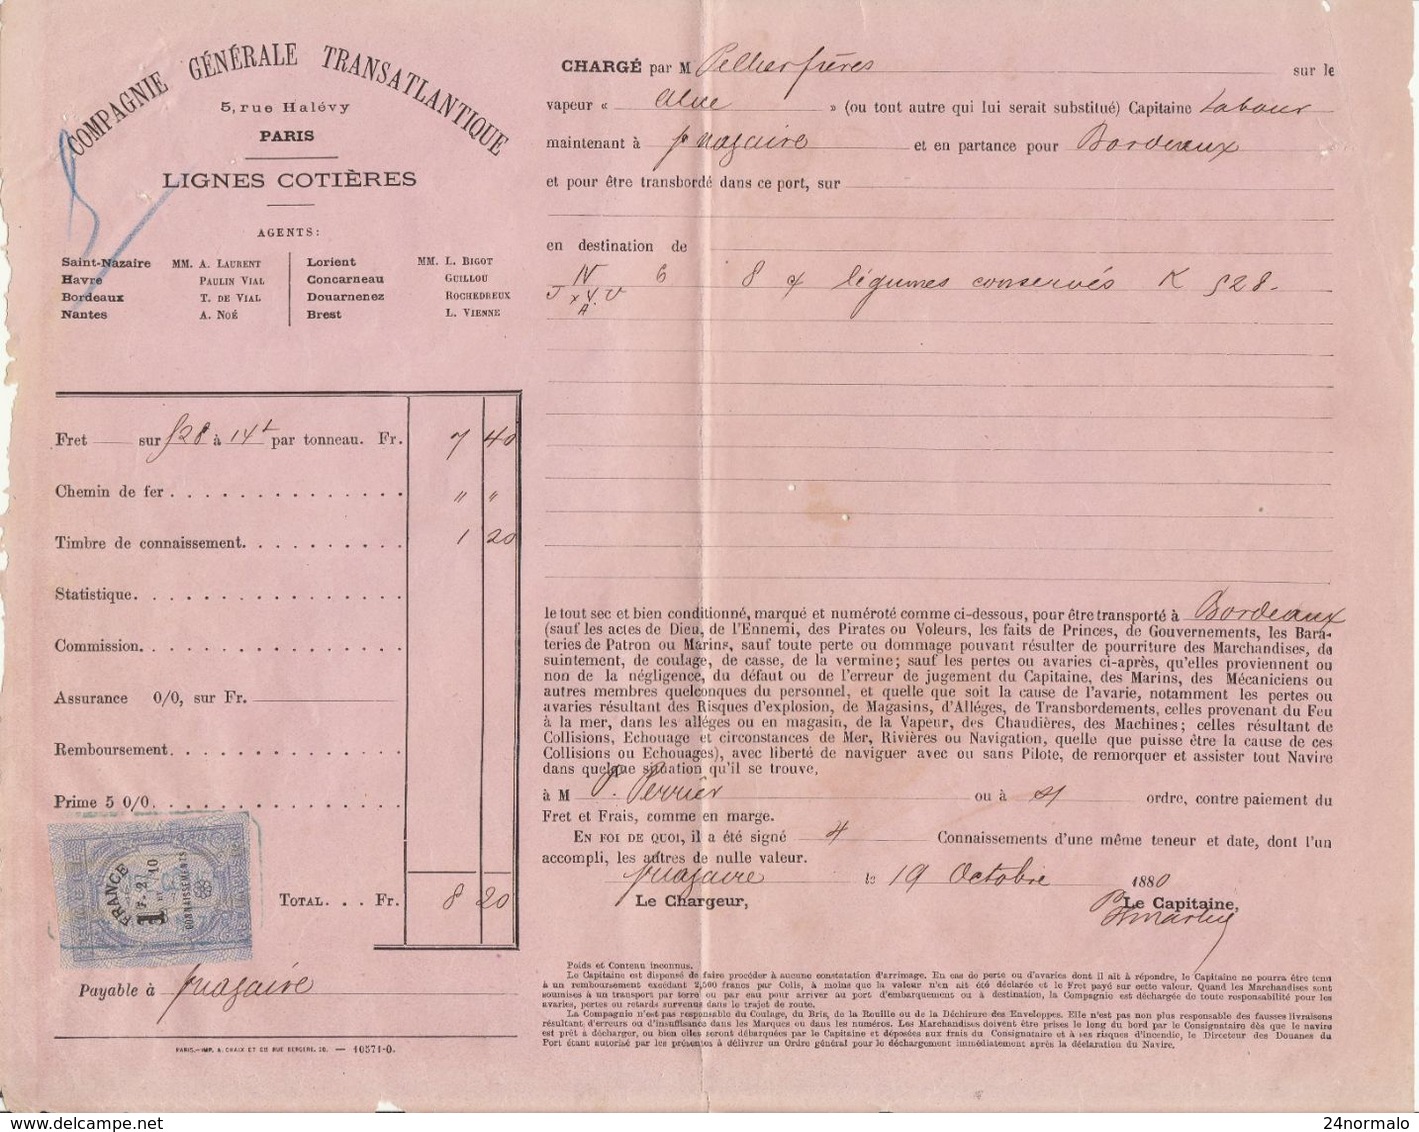 COMPAGNIE GÉNÉRALE TRANSATLANTIQUE
5, rue Halévy
PARIS
LIGNES COTIÈRES
AGENTS:
Saint-Nazaire MM. A. Laurent
Havre Paulin Vial
Bordeaux T. de Vial
Nantes A. Noé
Lorient MM. L. Bigot
Concarneau Guillou
Douarnenez Rochedreux
Brest L. Vienne
Fret sur 528 à 14 par tonneau. Fr. 7 40
Chemin de fer " "
Timbre de connaissement. 1 20
Statistique.
Commission.
Assurance 0/0, sur Fr.
Remboursement.
Prime 5 0/0.
FRANCE
1 F. 2/10
CONNAISSEMENTS
Total. . . Fr. 8 20
Payable à St Nazaire
PARIS.—IMP. A. CHAIX ET Cie RUE BERGÈRE, 20. — 10571-0.
CHARGÉ par M Pellier frères sur le
vapeur « Alice » (ou tout autre qui lui serait substitué) Capitaine Labour
maintenant à St Nazaire et en partance pour Bordeaux
et pour être transbordé dans ce port, sur
en destination de
IV 6 8 légumes conservés K 528.
le tout sec et bien conditionné, marqué et numéroté comme ci-dessous, pour être transporté à Bordeaux
(sauf les actes de Dieu, de l'Ennemi, des Pirates ou Voleurs, les faits de Princes, de Gouvernements, les Bara-
teries de Patron ou Marins, sauf toute perte ou dommage pouvant résulter de pourriture des Marchandises, de
suintement, de coulage, de casse, de la vermine; sauf les pertes ou avaries ci-après, qu'elles proviennent ou
non de la négligence, du défaut ou de l'erreur de jugement du Capitaine, des Marins, des Mécaniciens ou
autres membres quelconques du personnel, et quelle que soit la cause de l'avarie, notamment les pertes ou
avaries résultant des Risques d'explosion, de Magasins, d'Alléges, de Transbordements, celles provenant du Feu
à la mer, dans les alléges ou en magasin, de la Vapeur, des Chaudières, des Machines; celles résultant de
Collisions, Echouage et circonstances de Mer, Rivières ou Navigation, quelle que puisse être la cause de ces
Collisions ou Echouages), avec liberté de naviguer avec ou sans Pilote, de remorquer et assister tout Navire
dans quelque situation qu'il se trouve,
à M P. Perrier ou à ordre, contre paiement du
Fret et Frais, comme en marge.
En foi de quoi, il a été signé 4 Connaissements d'une même teneur et date, dont l'un
accompli, les autres de nulle valeur.
St Nazaire le 19 Octobre 1880
Le Chargeur, Le Capitaine,
Poids et Contenu inconnus.
Le Capitaine est dispensé de faire procéder à aucune constatation d'arrimage. En cas de perte ou d'avaries dont il ait à répondre, le Capitaine ne pourra être tenu
à un remboursement excédant 2,500 francs par Colis, à moins que la valeur n'en ait été déclarée et le Fret payé sur cette valeur. Quand les Marchandises sont
soumises à un transport par terre ou par eau pour arriver au port d'embarquement ou à destination, la Compagnie est déchargée de toute responsabilité pour les
avaries, pertes ou retards survenus dans le trajet de route.
La Compagnie n'est pas responsable du Coulage, du Bris, de la Rouille ou de la Déchirure des Enveloppes. Elle n'est pas non plus responsable des fausses livraisons
résultant d'erreurs ou d'insuffisance dans les Marques ou dans les numéros. Les Marchandises doivent être prises le long du bord par le Consignataire dès que le navire
est prêt à décharger, ou bien elles seront débarquées par le Capitaine et déposées aux frais du Consignataire et à ses risques d'incendie, le Directeur des Douanes du
Port étant autorisé par les présentes à délivrer un Ordre général pour le déchargement immédiatement après la déclaration du Navire.
www.delcampe.net
24normalo